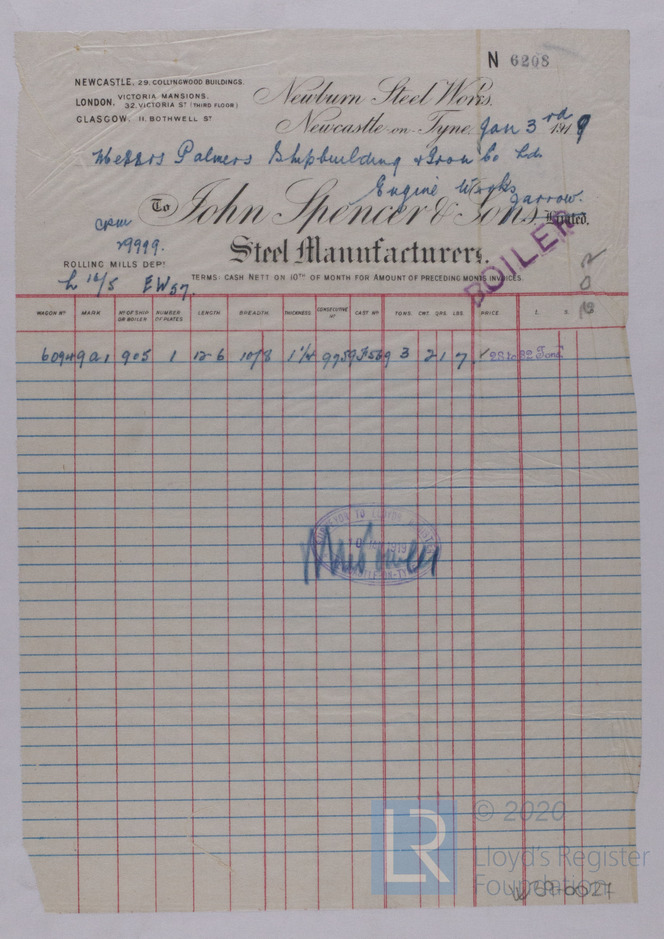 N 6208
NEWCASTLE, 29, COLLINGWOOD BUILDINGS.
LONDON, VICTORIA MANSIONS,
32, VICTORIA ST (THIRD FLOOR)
GLASGOW, 11, BOTHWELL ST
Newburn Steel Works.
Newcastle-on-Tyne, Jan 3rd 1919
Messrs Palmers Shipbuilding & Iron Co Ltd.
Engine Works
Jarrow.
To John Spencer & Sons, Limited.
29999.
Steel Manufacturers.
BOILER
ROLLING MILLS DEPT
TERMS: CASH NETT ON 10TH OF MONTH FOR AMOUNT OF PRECEDING MONTH'S INVOICES.
L 16/5 EW57.
WAGON No MARK No OF SHIP OR BOILER NUMBER OF PLATES LENGTH BREADTH THICKNESS CONSECUTIVE No CAST No TONS CWT. QRS. LBS. PRICE £ S.
6094 9a1 905 1 12-6 10/8 1 1/4 9759 F569 3 2 1 7 28 to 32 Tons
SURVEYOR TO LLOYD'S REGISTER
10 JAN 1919
© 2020
LR
Lloyd's Register
Foundation
W791-0027